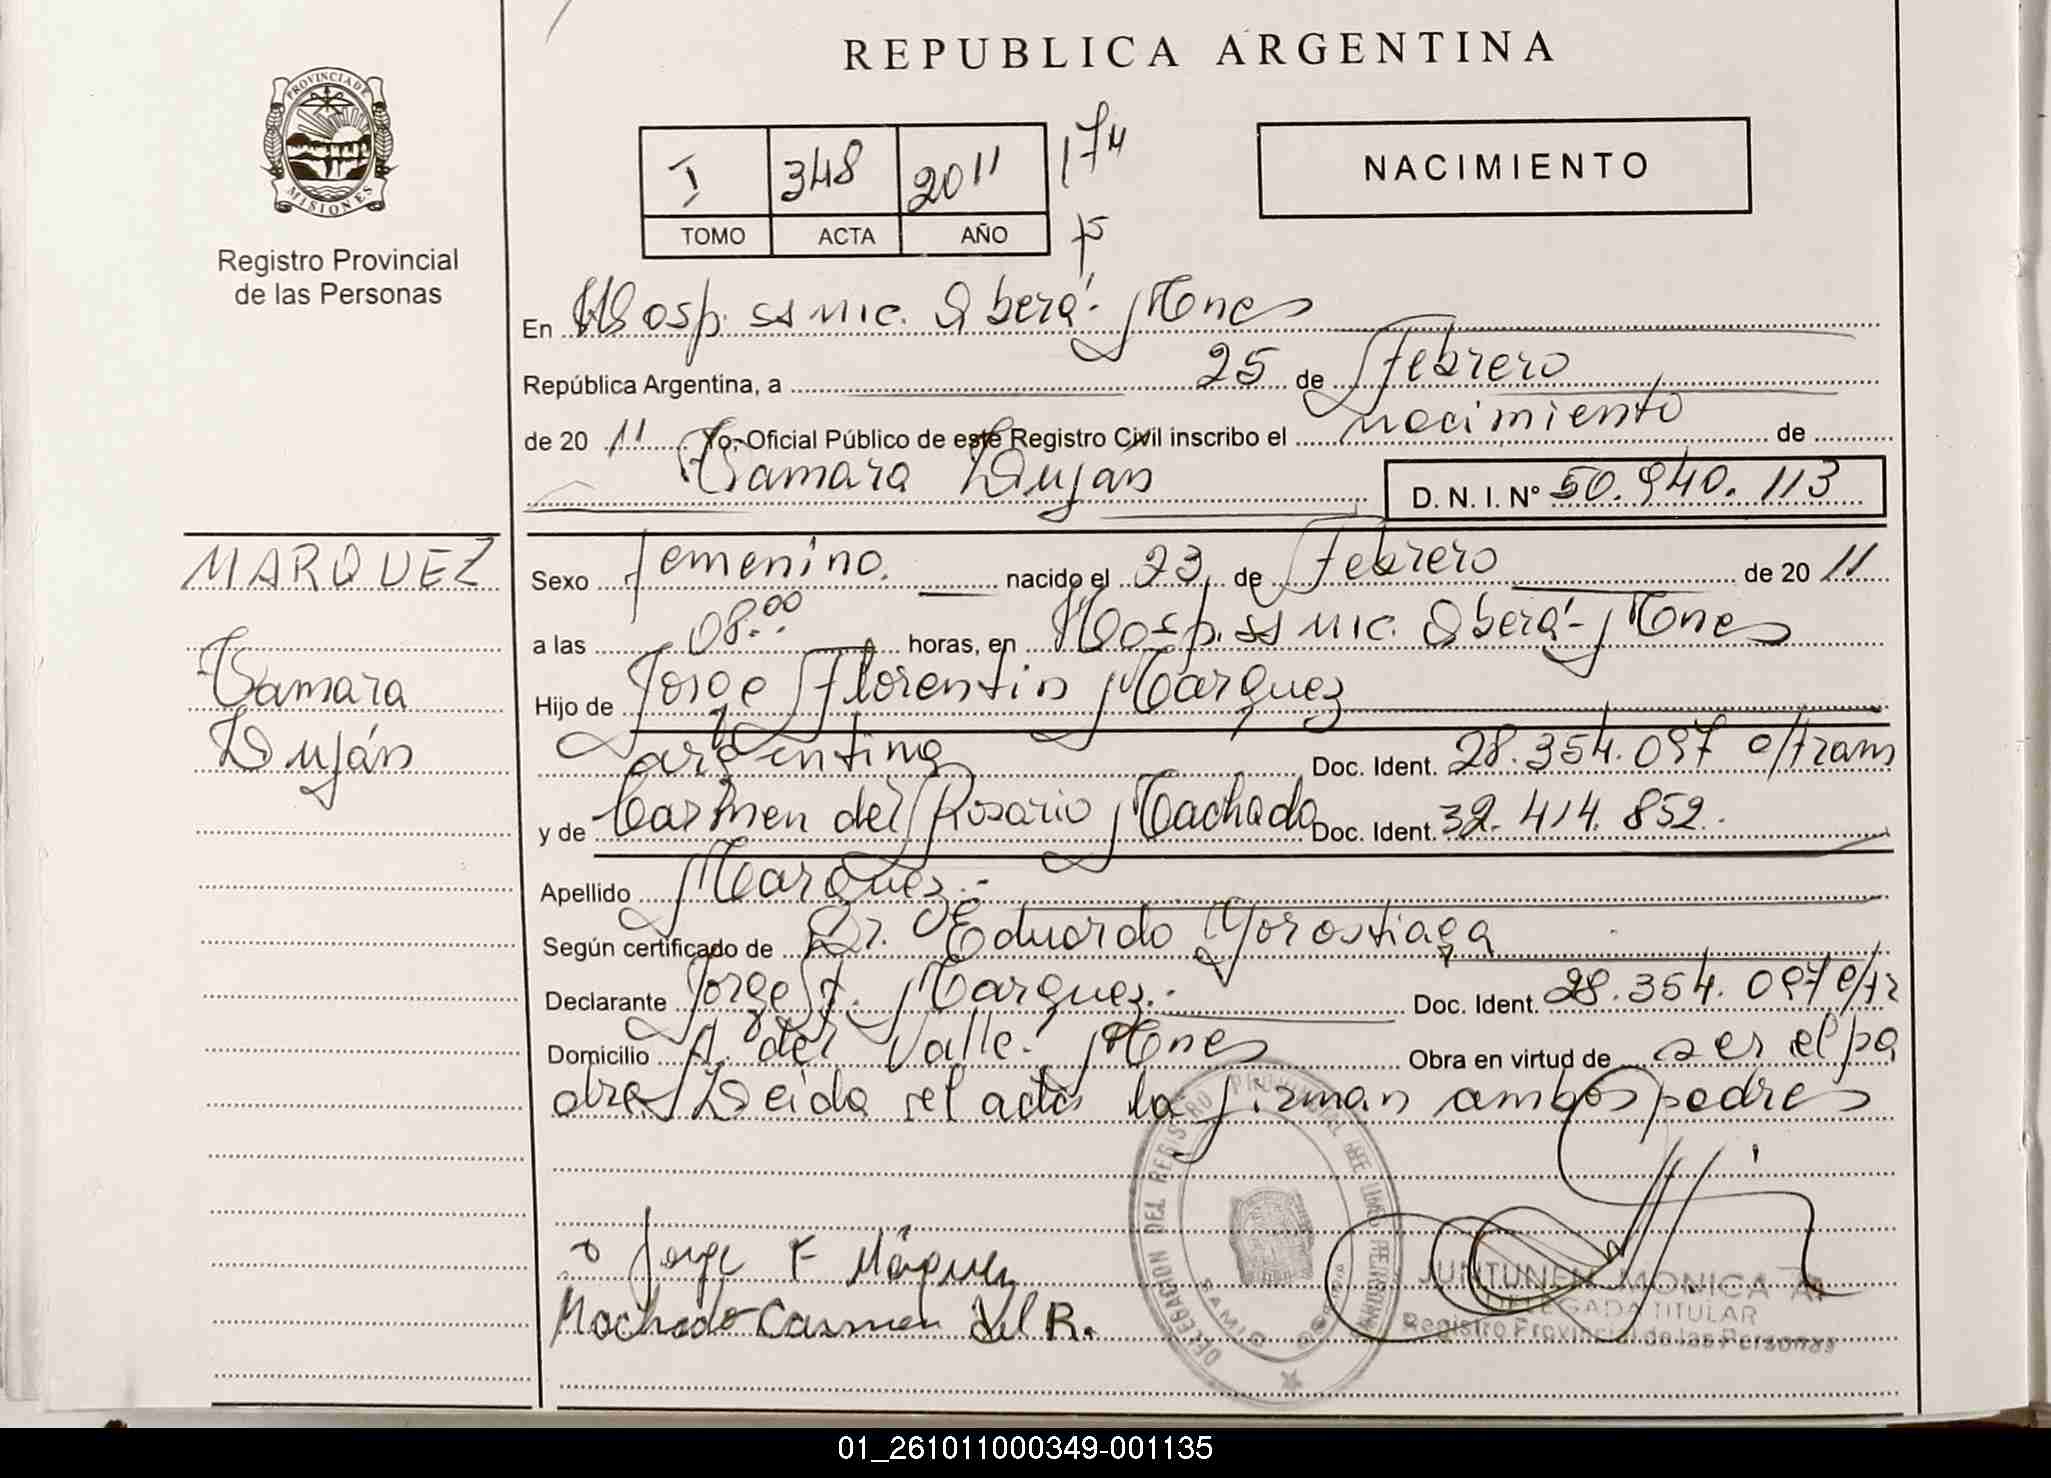 REPUBLICA ARGENTINA
PROVINCIA DE
MISIONES
Registro Provincial
de las Personas
I 348 2011 174
TOMO ACTA AÑO
NACIMIENTO
En Hosp. ss mic. Oberá- Mnes
República Argentina, a 25 de Febrero
de 20 11 Yo, Oficial Público de este Registro Civil inscribo el nacimiento de
Tamara Luján D. N. I. Nº 50.940.113
MARQUEZ
Tamara
Luján
Sexo femenino. nacido el 23 de Febrero de 20 11
a las 08.00 horas, en Hosp. ss mic. Oberá- Mnes
Hijo de Jorge Florentin Marquez
argentina Doc. Ident. 28.354.097 e/tram
y de Carmen del Rosario Machado Doc. Ident. 32.414.852.
Apellido Marquez.-
Según certificado de Dr. Eduardo Gorostiaga
Declarante Jorge F. Marquez.- Doc. Ident. 28.354.097 e/tr
Domicilio A. del Valle. Mnes Obra en virtud de ser el pa
dre Leida el acta la firman ambos padres
Jorge F Máquez
Machado Carmen del R.
DELEGACION DEL REGISTRO PROVINCIAL DE LAS PERSONAS
JUNTUNEN MONICA A.
DELEGADA TITULAR
Registro Provincial de las Personas
01_261011000349-001135